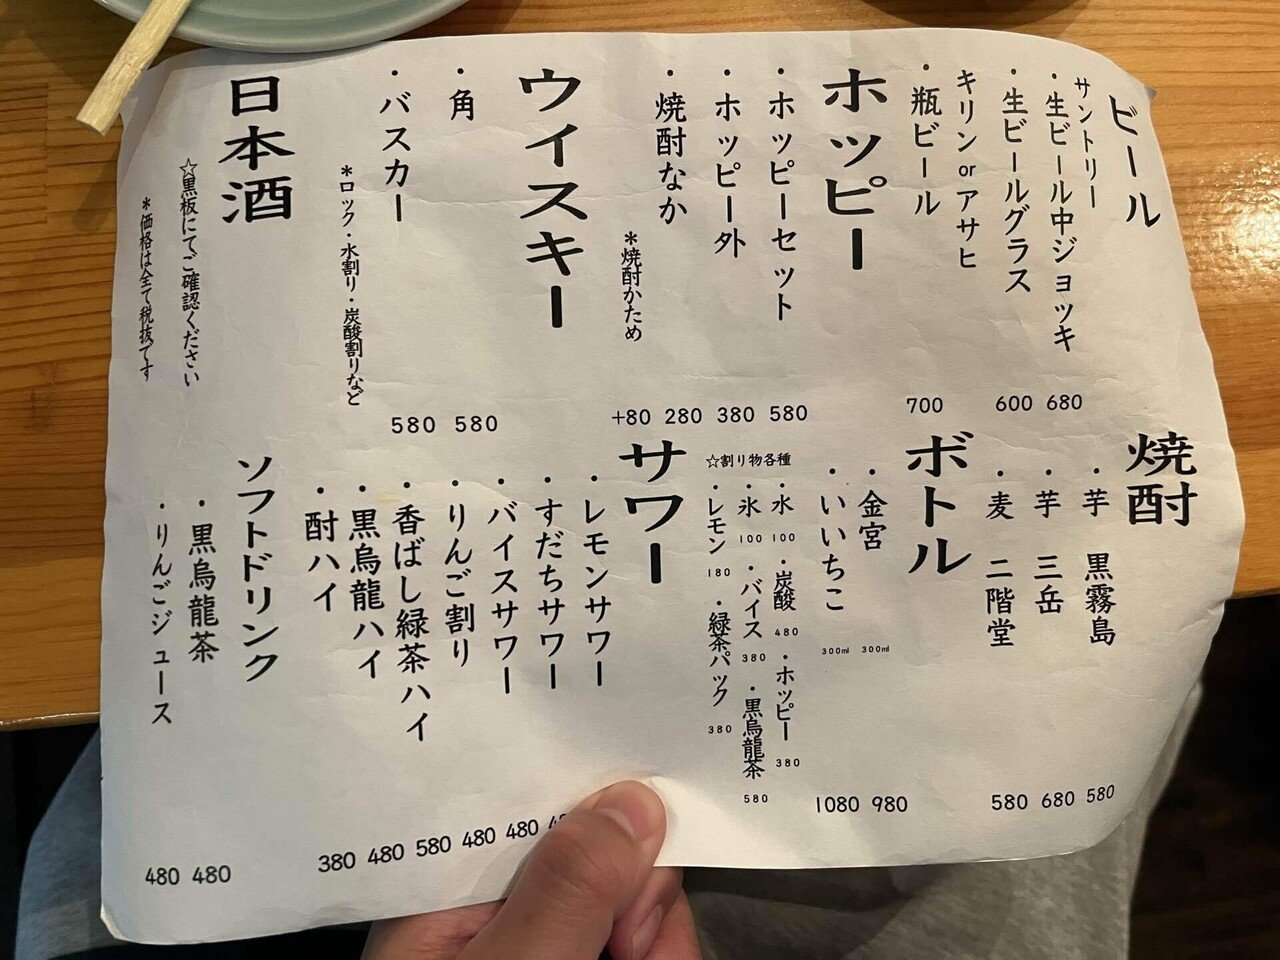 ビール
サントリー
・生ビール中ジョッキ 680
・生ビールグラス 600
キリン or アサヒ
・瓶ビール 700
ホッピー
・ホッピーセット 580
・ホッピー外 380
・焼酎なか 280
*焼酎かため +80
ウイスキー
・角 580
・バスカー 580
*ロック・水割り・炭酸割りなど
日本酒
☆黒板にてご確認ください
*価格は全て税抜です
焼酎
・芋 黒霧島 580
・芋 三岳 680
・麦 二階堂 580
ボトル
・金宮 300ml 980
・いいちこ 300ml 1080
☆割り物各種
・水 100 ・炭酸 480 ・ホッピー 380
・氷 100 ・バイス 380 ・黒烏龍茶 580
・レモン 180 ・緑茶パック 380
サワー
・レモンサワー
・すだちサワー
・バイスサワー 480
・りんご割り 480
・香ばし緑茶ハイ 580
・黒烏龍ハイ 480
・酎ハイ 380
ソフトドリンク
・黒烏龍茶 480
・りんごジュース 480